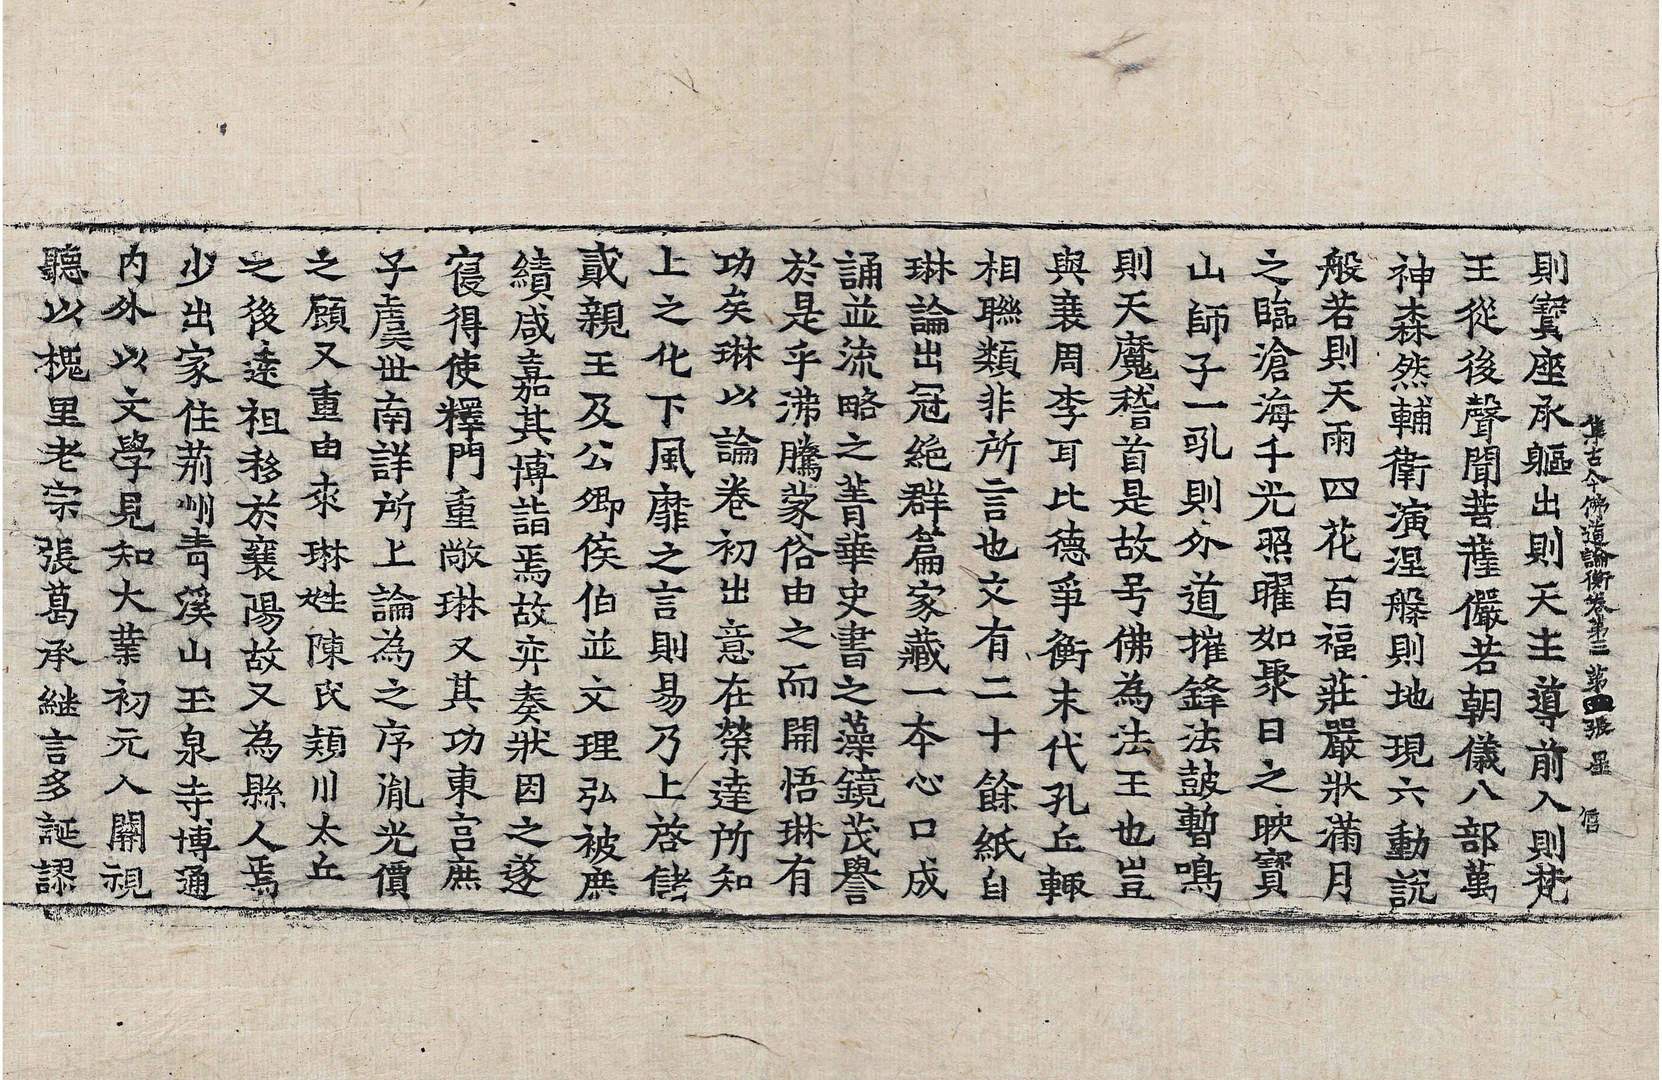 集古今佛道論衡卷第三 第四張 星 信
則寶座承軀出則天主導前入則梵
王從後聲聞菩薩儼若朝儀八部萬
神森然輔衛演涅槃則地現六動說
般若則天雨四花百福莊嚴狀滿月
之臨滄海千光照曜如聚日之映寶
山師子一吼則外道摧鋒法鼓暫鳴
則天魔稽首是故号佛為法王也豈
與衰周李耳比德爭衡末代孔丘輙
相聯類非所言也文有二十餘紙自
琳論出冠絶群篇家藏一本心口成
誦並流略之菁華史書之藻鏡茂譽
於是乎沸騰蒙俗由之而開悟琳有
功矣琳以論卷初出意在榮達所知
上之化下風靡之言則易乃上啓儲
貳親王及公卿侯伯並文理弘被庶
績咸嘉其博詣焉故弈奏狀因之遂
寢得使釋門重敞琳又其功東宫庶
子虞世南詳所上論為之序胤光價
之顧又重由來琳姓陳氏潁川太丘
之後遠祖移於襄陽故又為縣人焉
少出家住荊州青溪山玉泉寺博通
內外以文學見知大業初元入關視
聽以槐里老宗張葛承継言多誕謬